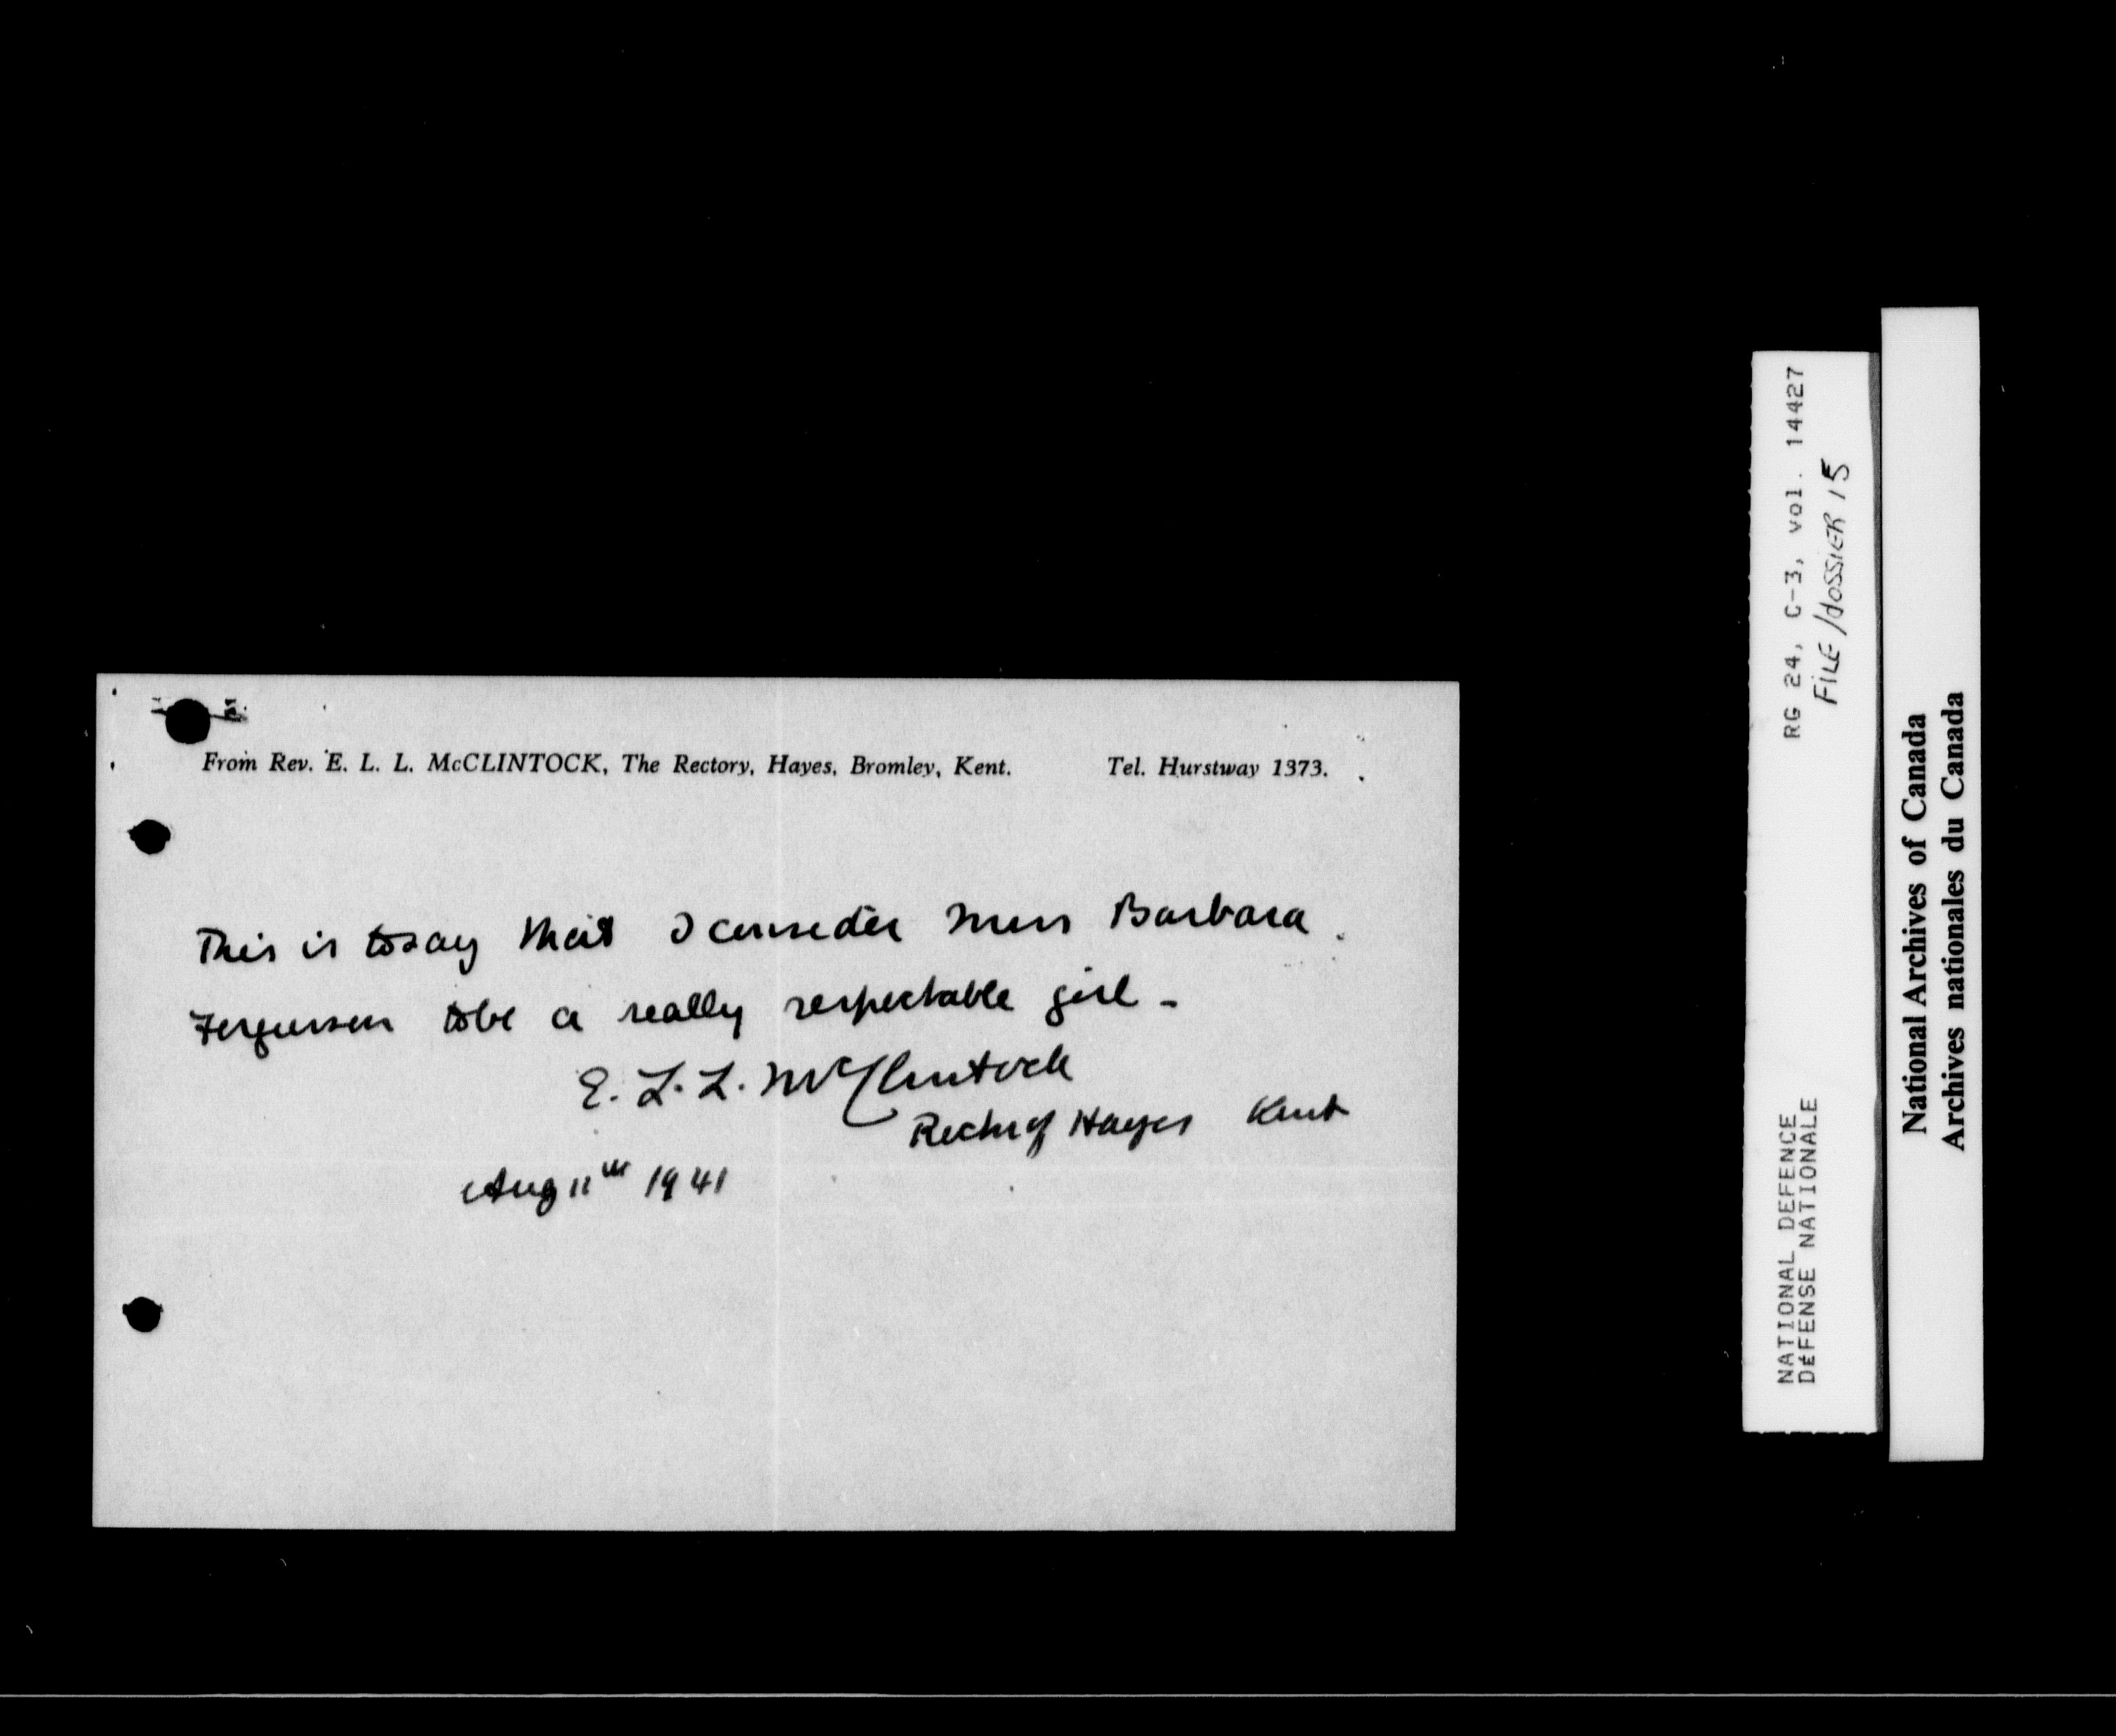 From Rev. E. L. L. McCLINTOCK, The Rectory, Hayes, Bromley, Kent. Tel. Hurstway 1373.
This is to say that I consider Miss Barbara
Ferguson to be a really respectable girl -
E. L. L. McClintock
Rector of Hayes Kent
Aug 11th 1941
RG 24, C-3, vol. 14427
FILE/dOSSIER 15
NATIONAL DEFENCE
DÉFENSE NATIONALE
National Archives of Canada
Archives nationales du Canada